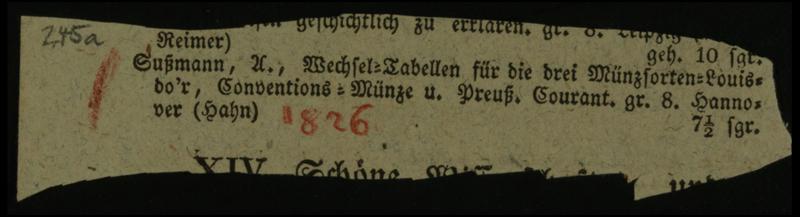 245a
geschichtlich zu erklären. gr. 8. Leipzig
Reimer) geh. 10 ſgr.
Sußmann, A., Wechſel=Tabellen für die drei Münzſorten=Louis=
do'r, Conventions=Münze u. Preuß. Courant. gr. 8. Hanno=
ver (Hahn) 7½ ſgr.
1826
XIV. Schöne